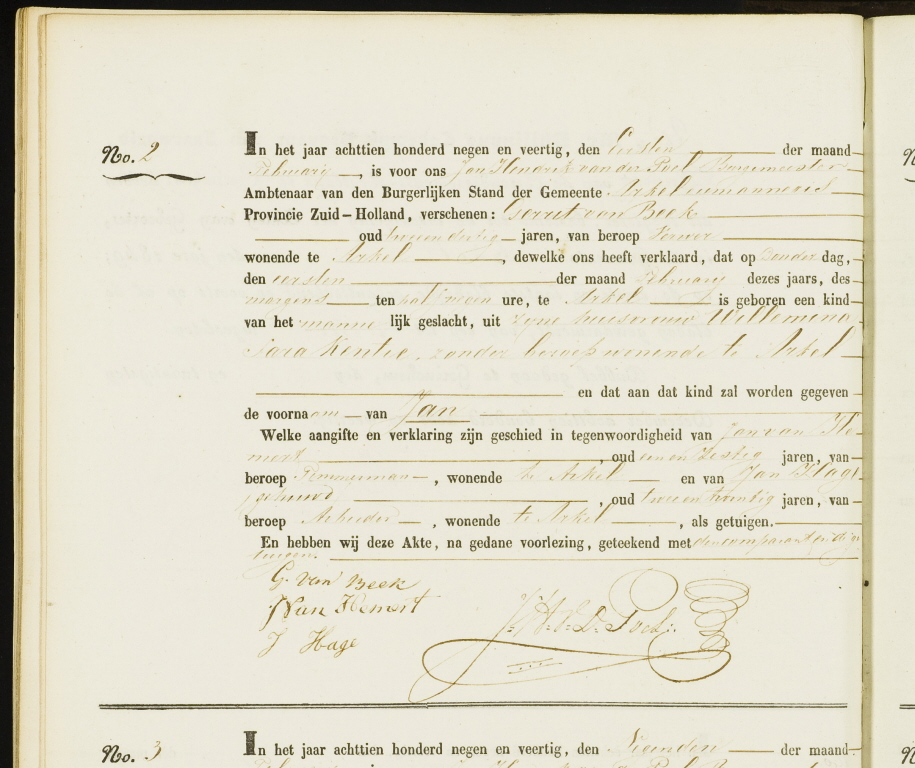 No. 2
In het jaar achttien honderd negen en veertig, den Eersten der maand
Februarij, is voor ons Jan Hendrik van der Poel Burgemeester
Ambtenaar van den Burgerlijken Stand der Gemeente Arkel
Provincie Zuid-Holland, verschenen: Gerrit van Beek
oud twee en dertig jaren, van beroep Verwer
wonende te Arkel, dewelke ons heeft verklaard, dat op Donder dag,
den eersten der maand Februarij dezes jaars, des
morgens ten half negen ure, te Arkel is geboren een kind
van het manne lijk geslacht, uit zijne huisvrouw Willemena
Sara Kentie, zonder beroep wonende te Arkel
en dat aan dat kind zal worden gegeven
de voorna am van Jan
Welke aangifte en verklaring zijn geschied in tegenwoordigheid van Jan van He-
mert, oud een en zestig jaren, van
beroep Timmerman, wonende te Arkel en van Jan Hage
, oud twee en twintig jaren, van
beroep Arbeider, wonende te Arkel, als getuigen.
En hebben wij deze Akte, na gedane voorlezing, geteekend met den comparant en de ge-
tuigen.
G. van Beek
J Van Hemert
J Hage
J. H. v. Dr. Poel.
No. 3
In het jaar achttien honderd negen en veertig, den der maand